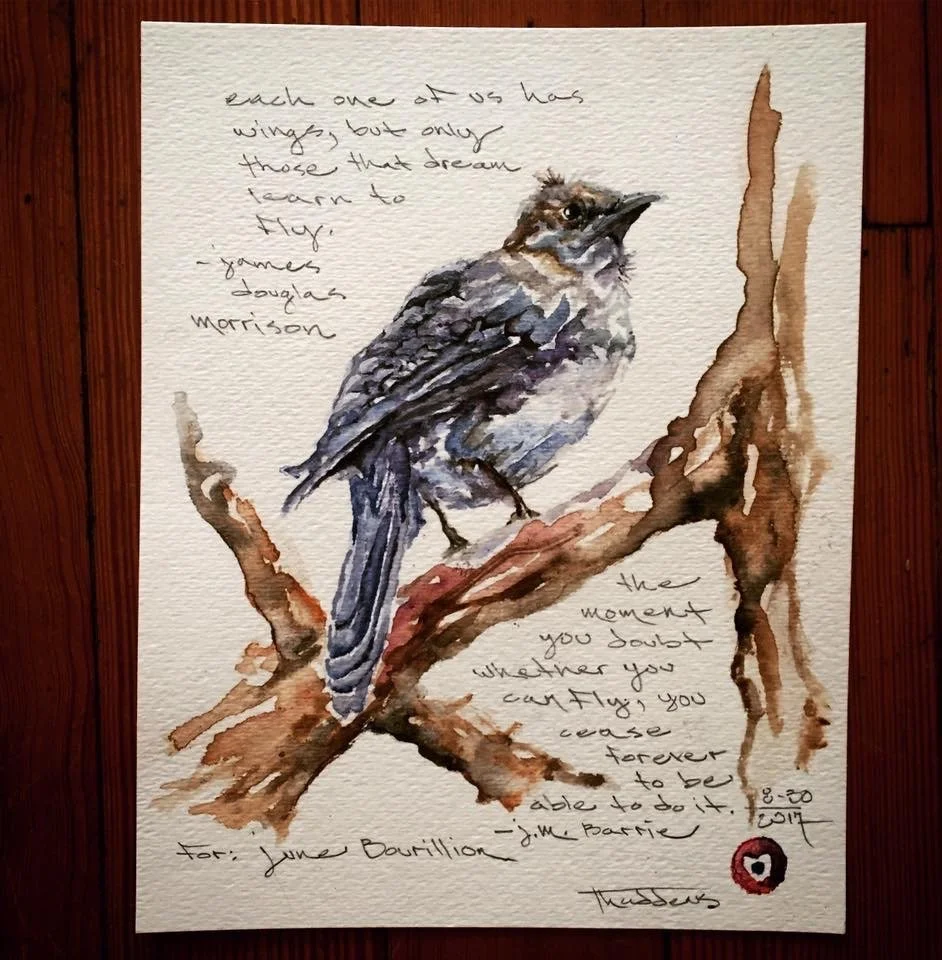 each one of us has
wings, but only
those that dream
learn to
fly.
- james
douglas
morrison
the
moment
you doubt
whether you
can fly, you
cease
forever
to be
able to do it.
- j.m. Barrie
8-30
2017
For: June Bourillion
Thaddeus